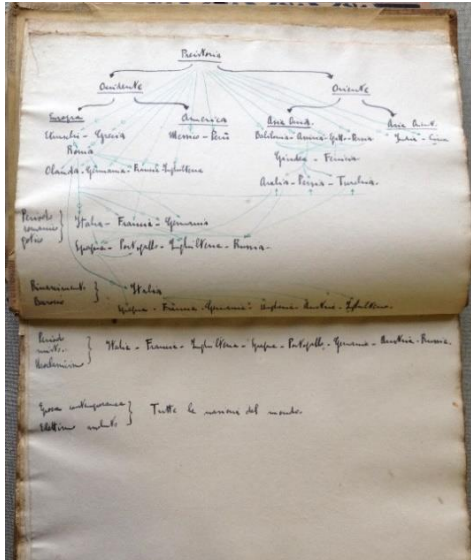 Preistoria
Occidente Oriente
Europa America Asia Occid. Asia Orient.
Etruschi - Grecia Messico - Perù Babilonia - Assiria - Egitto - Persia India - Cina
Roma Giudea - Fenicia
Olanda - Germania - Francia Inghilterra
Arabia - Persia - Turchia
Periodo romanico gotico } Italia - Francia - Germania
Spagna - Portogallo - Inghilterra - Russia.
Rinascimento Barocco } Italia
Spagna - Francia - Germania - Inghilterra.
Periodo Neoclassicismo } Italia - Francia - Inghilterra - Spagna - Portogallo - Germania - Austria - Russia.
Epoca contemporanea
Tutte le nazioni del mondo.